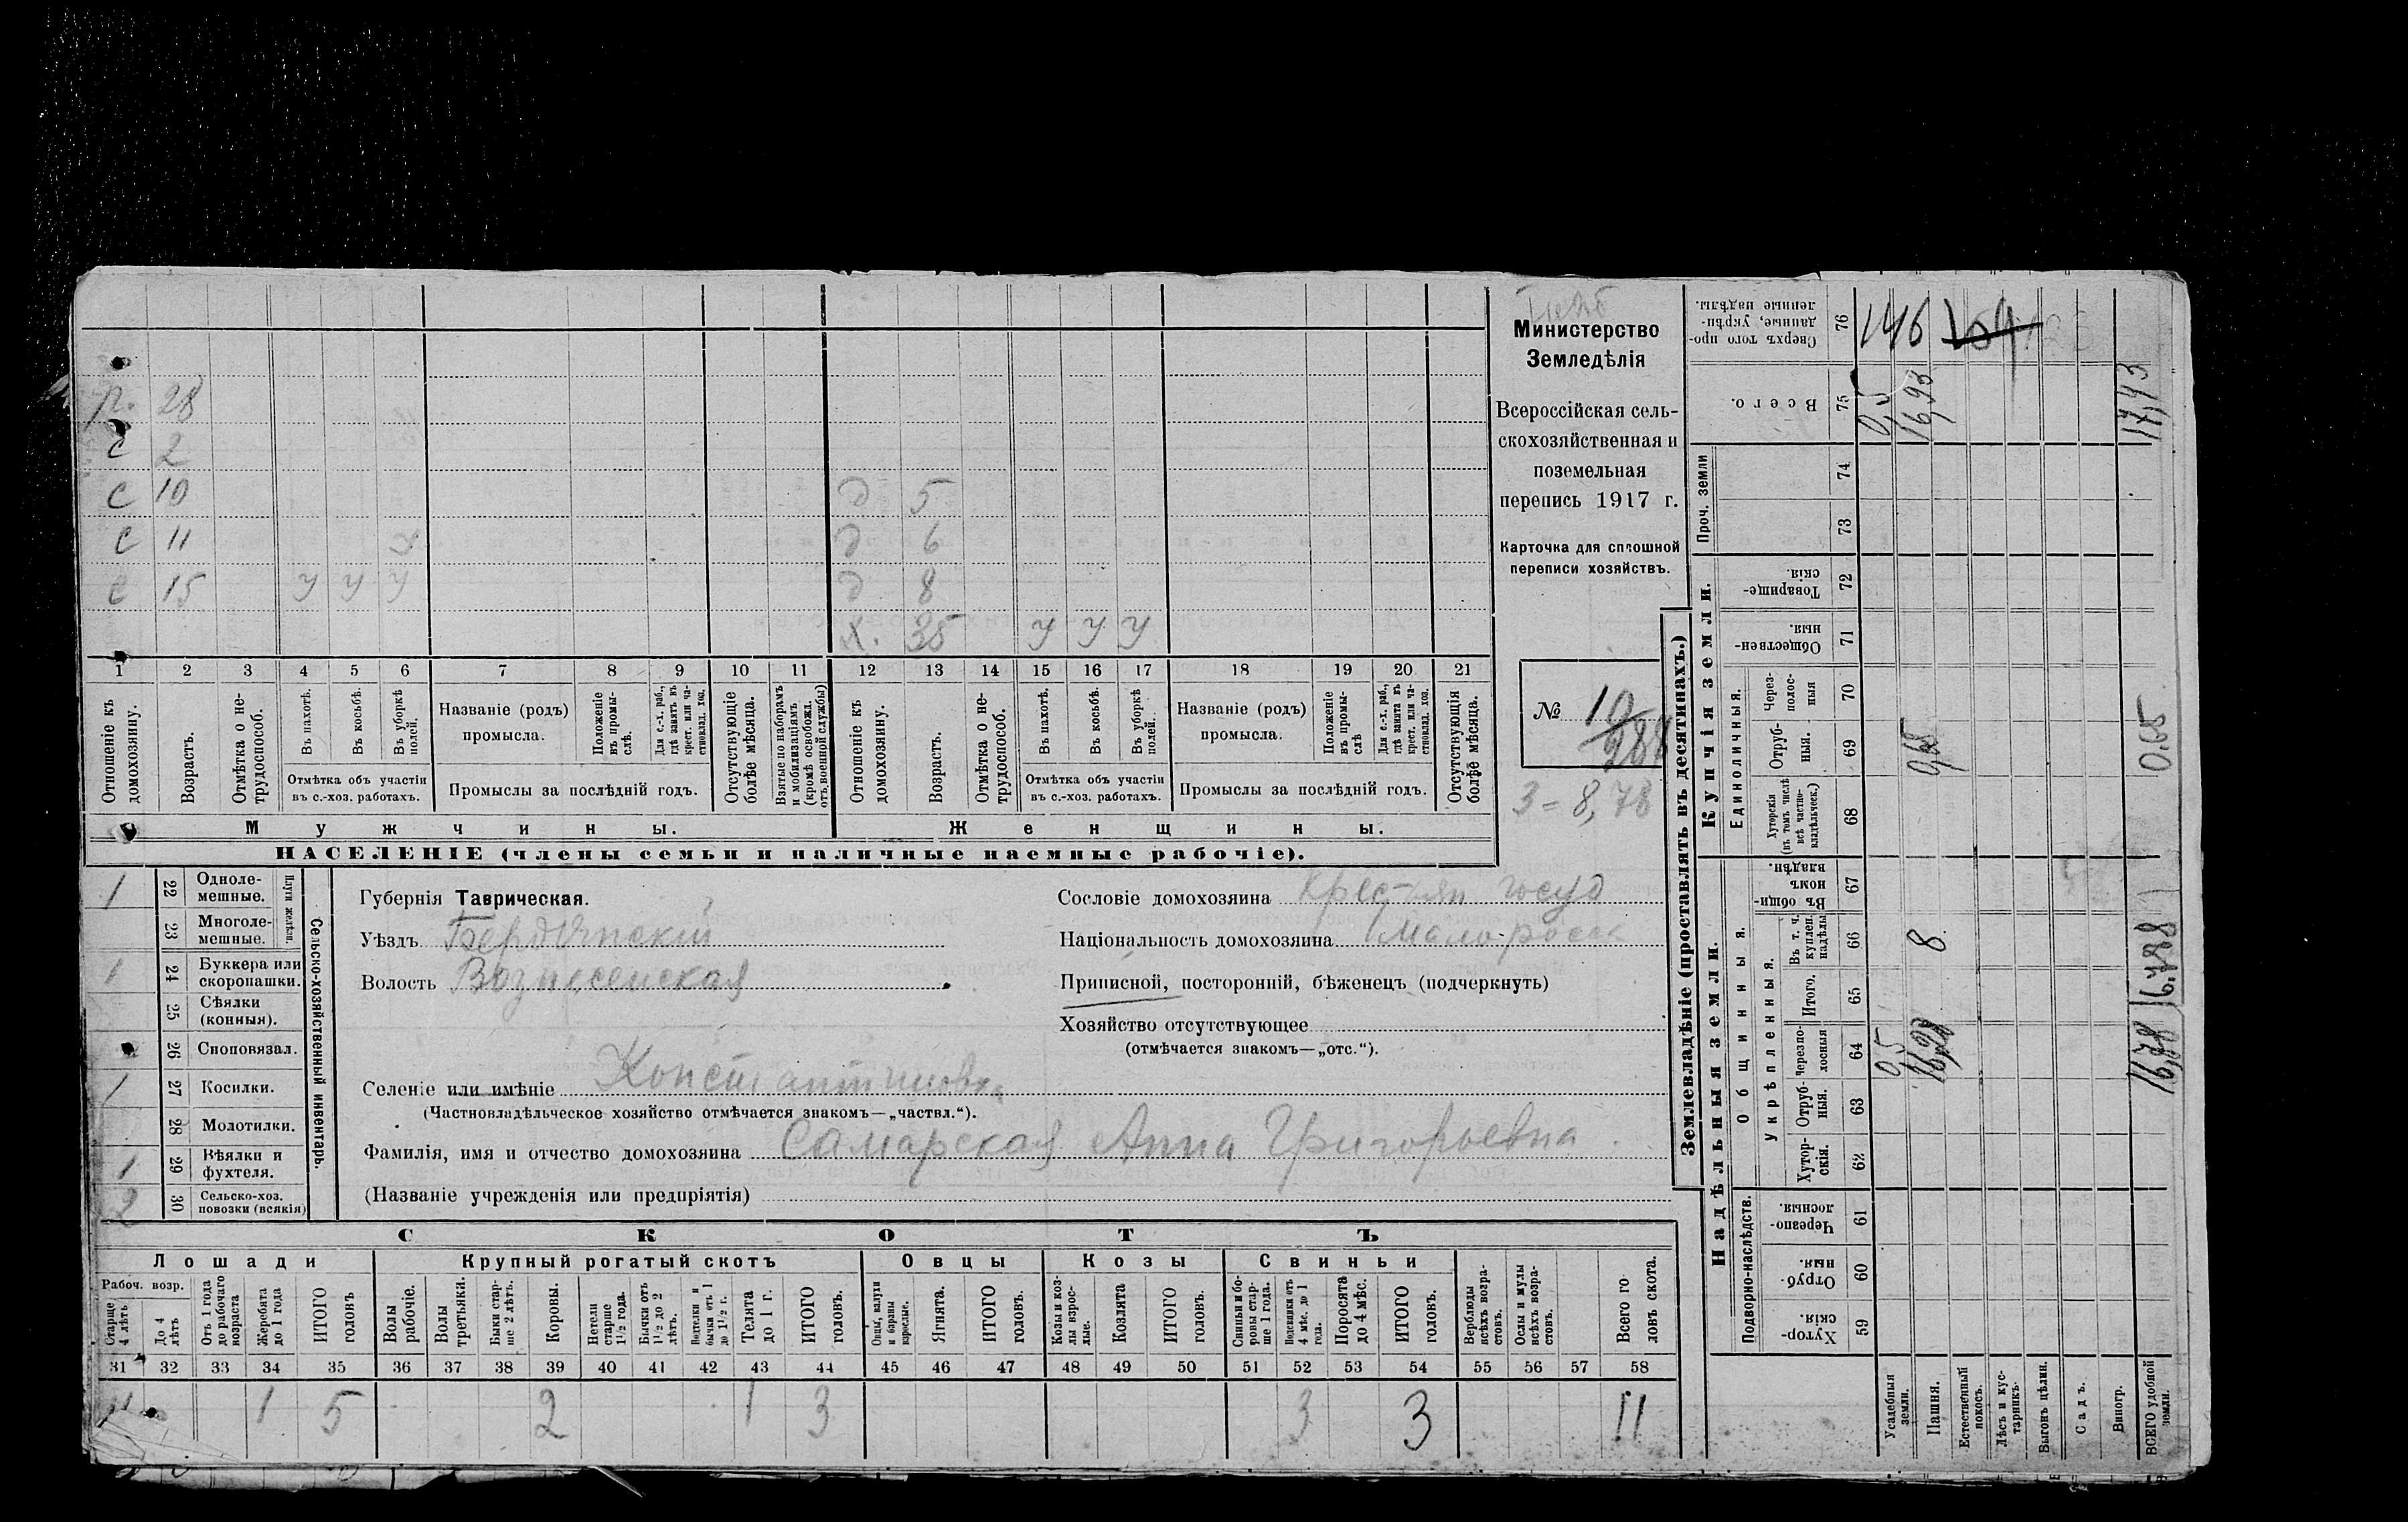 Министерство
Земледѣлія
Всероссійская сель-
скохозяйственная и
поземельная
перепись 1917 г.
Карточка для сплошной
переписи хозяйствъ.
№ 19
288
3 = 8,78
р. 28
с 2
с 10 д 5
с 11 х д 6
с 15 у у у д 8
х. 35 у у у
1 2 3 4 5 6 7 8 9 10 11 12 13 14 15 16 17 18 19 20 21
Отношеніе къ домохозяину.
Возрастъ.
Отмѣтка о не-трудоспособ.
Въ пахотѣ.
Въ косьбѣ.
Въ уборкѣ полей.
Отмѣтка объ участіи
въ с.-хоз. работахъ.
Названіе (родъ)
промысла.
Положеніе въ промы-слѣ.
Для с.-х. раб., гдѣ занятъ въ крест. или ча-стновлад. хоз.
Промыслы за послѣдній годъ.
Отсутствующіе болѣе мѣсяца.
Взятые по наборамъ и мобилизаціямъ (кромѣ освобожд. отъ военной службы)
Отношеніе къ домохозяину.
Возрастъ.
Отмѣтка о не-трудоспособ.
Въ пахотѣ.
Въ косьбѣ.
Въ уборкѣ полей.
Отмѣтка объ участіи
въ с.-хоз. работахъ.
Названіе (родъ)
промысла.
Положеніе въ промы-слѣ
Для с.-х. раб., гдѣ занята въ крест. или ча-стновлад. хоз.
Промыслы за послѣдній годъ.
Отсутствующія болѣе мѣсяца.
Мужчины.
Женщины.
НАСЕЛЕНІЕ (члены семьи и наличные наемные рабочіе).
1 22 Одноле-мешные.
23 Многоле-мешные.
Плуги желѣзн.
1 24 Буккера или скоропашки.
25 Сѣялки (конныя).
26 Сноповязал.
1 27 Косилки.
28 Молотилки.
1 29 Вѣялки и фухтеля.
2 30 Сельско-хоз. повозки (всякія)
Сельско-хозяйственный инвентарь.
Губернія Таврическая.
Уѣздъ Бердянскій
Волость Вознесенская
Сословіе домохозяина Крестьян госуд
Національность домохозяина Малоросс
Приписной, посторонній, бѣженецъ (подчеркнуть)
Хозяйство отсутствующее
(отмѣчается знакомъ—„отс.“).
Селеніе или имѣніе Константиновка
(Частновладѣльческое хозяйство отмѣчается знакомъ—„частвл.“).
Фамилія, имя и отчество домохозяина Самарская Анна Григорьевна
(Названіе учрежденія или предпріятія)
СКОТЪ
Лошади
Крупный рогатый скотъ
Овцы
Козы
Свиньи
Рабоч. возр.
Старше 4 лѣтъ
До 4 лѣтъ
Отъ 1 года до рабочаго возраста
Жеребята до 1 года
ИТОГО головъ
Волы рабочіе.
Волы третьяки.
Быки стар-ше 2 лѣтъ.
Коровы.
Нетели старше 1½ года.
Бычки отъ 1½ до 2 лѣтъ.
Подтелки и бычки отъ 1 до 1½ г.
Телята до 1 г.
ИТОГО головъ.
Овцы, валухи и бараны взрослые.
Ягнята.
ИТОГО головъ.
Козы и коз-лы взрос-лые.
Козлята
ИТОГО головъ.
Свиньи и бо-ровы стар-ше 1 года.
Подсвинки отъ 4 мѣс. до 1 года.
Поросята до 4 мѣс.
ИТОГО головъ.
Верблюды всѣхъ возра-стовъ.
Ослы и мулы всѣхъ возра-стовъ.
Всего го-ловъ скота.
31 32 33 34 35 36 37 38 39 40 41 42 43 44 45 46 47 48 49 50 51 52 53 54 55 56 57 58
4 1 5 2 1 3 3 3 11
Землевладѣніе (проставлять въ десятинахъ.)
Надѣльныя земли.
Купчія земли.
Проч. земли
Подворно-наслѣдств.
Общинныя.
Укрѣпленныя.
Единоличныя.
Сверхъ того про-данные, укрѣп-ленные надѣлы. 76 146
Всего. 75 0,5 16,93 17,43
74
73
Товарище-скія. 72
Обществен-ныя. 71
Через-полос-ныя 70
Отруб-ныя. 69 0,65 0,65
Хуторскія (въ томъ числѣ всѣ частно-владѣльческ.) 68
Въ общи-номъ владѣн. 67
Въ т. ч. куплен. надѣлы 66 8
Итого. 65
Черезпо-лосныя 64 0,5 16,28 16,78
Отруб-ныя. 63
Хутор-скія. 62
Черезпо-лосныя. 61
Отруб-ныя. 60
Хутор-скія. 59
Усадебныя земли.
Пашня.
Естественный покосъ.
Лѣсъ и кус-тарникъ.
Выгонъ цѣлин.
Садъ.
Виногр.
ВСЕГО удобной земли.